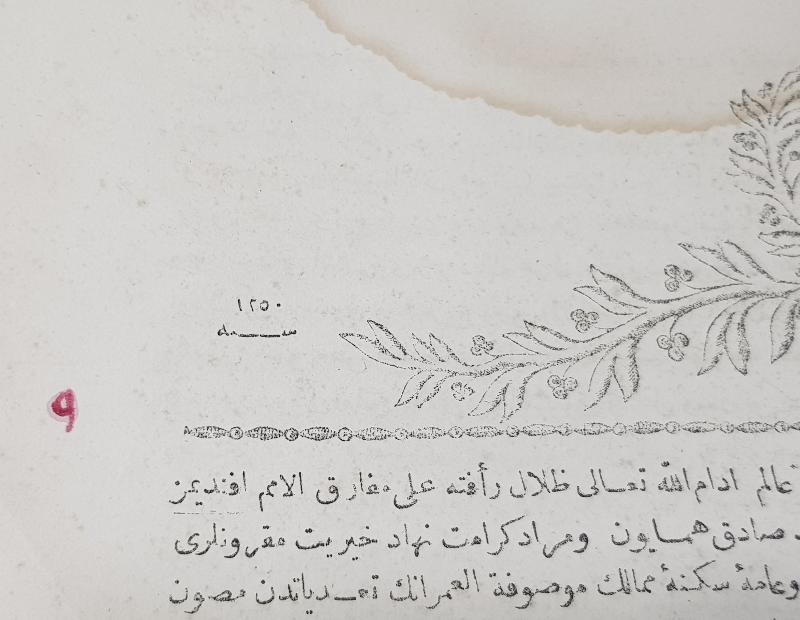 ١٢٥٠
سنه
٩
عالم ادام الله تعالى ظلال رأفته على مفارق الامم افنديمز
صادق همايون ومراد كرامت نهاد خيريت مقرونلرى
وعامهٔ سكنهٔ ممالك موصوفة العمرانك تعدياتدن مصون